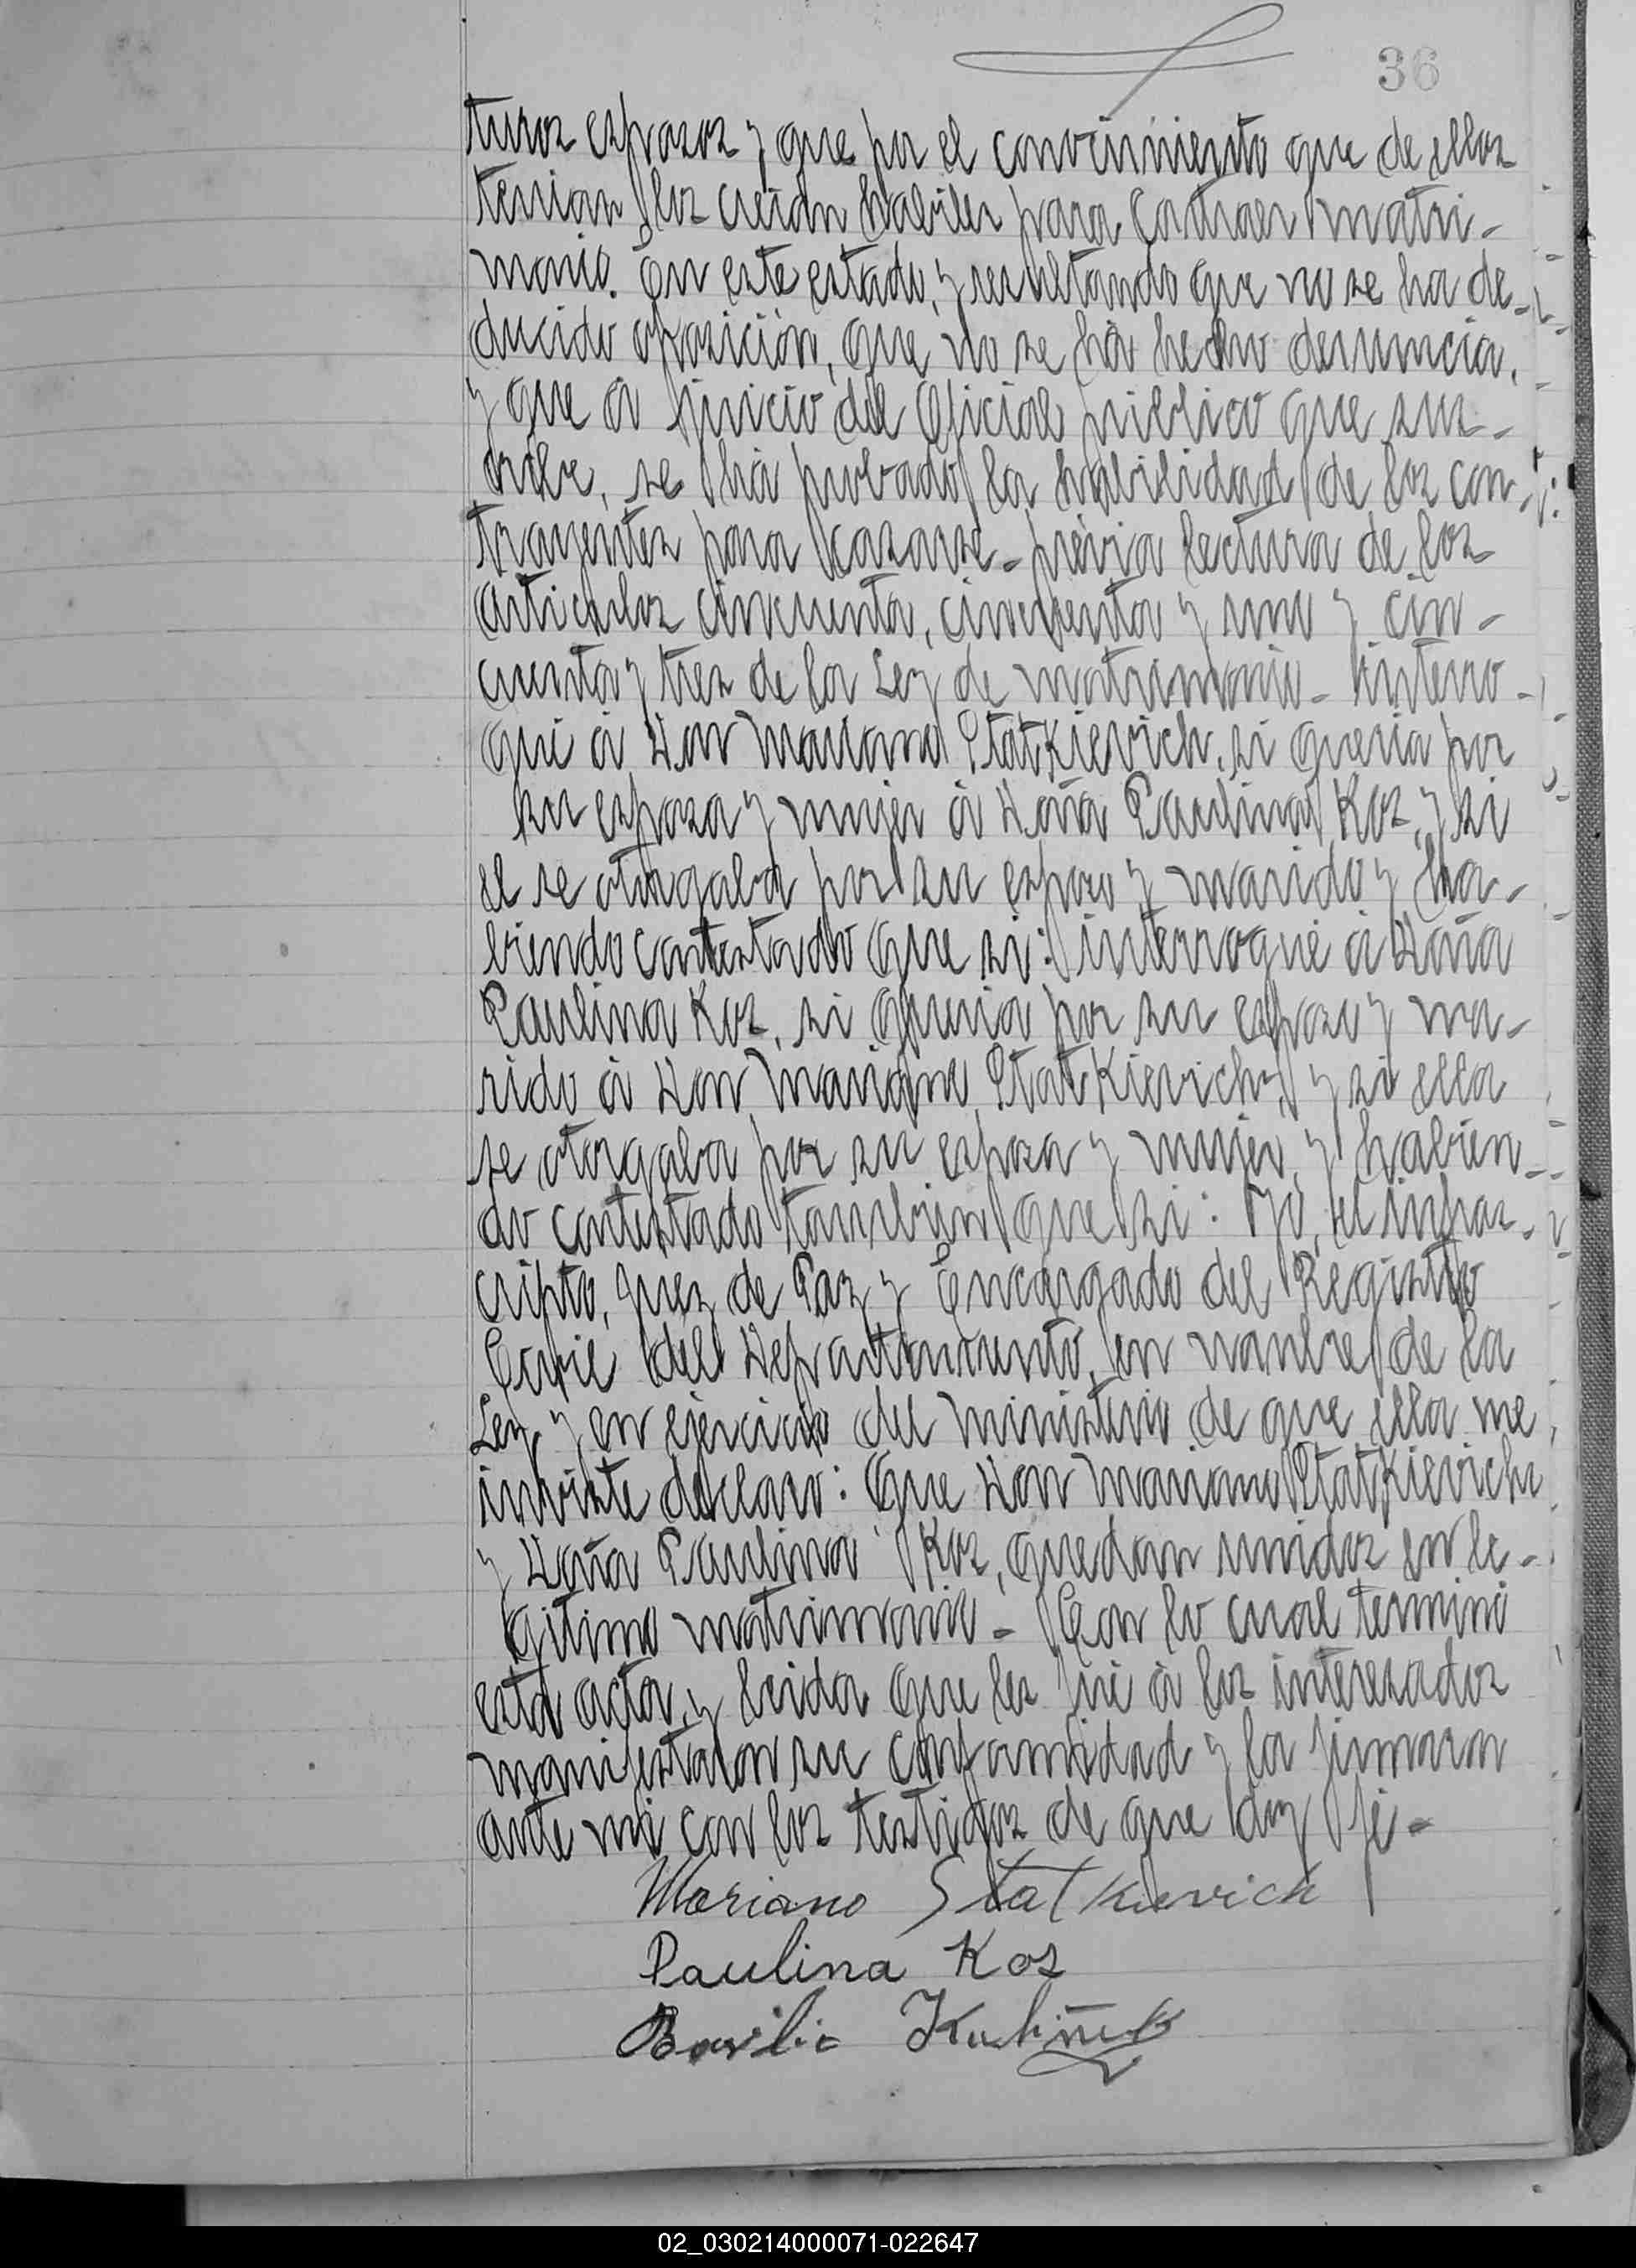 36
turos esposos y que por el conocimiento que de ellos
tenian los creian habiles para contraer matri-
monio. En este estado, y resultando que no se ha de-
ducido oposición, que no se há hecho denuncia,
y que á juicio del Oficial público que sus-
cribe, se há probado la habilidad de los con-
trayentes para casarse- prévia lectura de los
articulos cincuenta, cincuenta y uno y cin-
cuenta y tres de la Ley de matrimonio- interro-
gué á Don Mariano Statkievich, si queria por
su esposa y mujer á Doña Paulina Kos, y si
el se otorgaba por su esposo y marido y ha-
biendo contestado que si: interrogué á Doña
Paulina Kos, si queria por su esposo y ma-
rido á Don Mariano Statkievich, y si ella
se otorgaba por su esposa y mujer, y habien-
do contestado tambien que si: Yo, el infras-
cripto, Juez de Paz y Encargado del Registro
Civil del Departamento, en nombre de la
Ley y en ejercicio del ministerio de que ella me
inviste declaro: Que Don Mariano Statkievich
y Doña Paulina Kos, quedan unidos en le-
gitimo matrimonio- Con lo cual terminó
esta acta, y leida que les fué á los interesados
manifestaron su conformidad y la firmaron
ante mi con los testigos de que doy fé-
Mariano Statkievich
Paulina Kos
Basilio
02_030214000071-022647